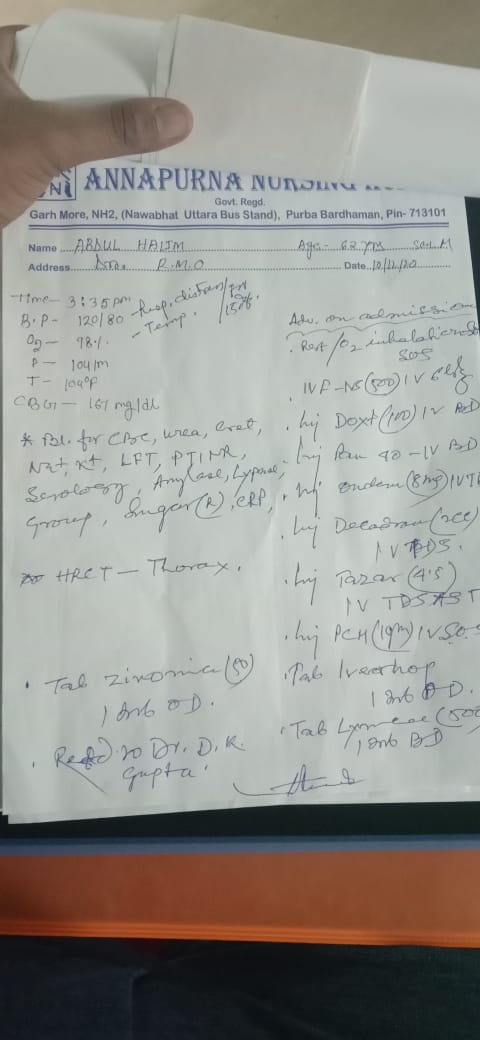 ANNAPURNA
Govt. Regd.
Garh More, NH2, (Nawabhat Uttara Bus Stand), Purba Bardhaman, Pin- 713101
Name ABDUL HALIM Age- 62 yrs Sex. M
Address R.M.O Date 10/12/20
Time- 3:35 pm
B.P- 120/80
- Resp. distress
- Temp.
P- 104/m
T- 104°F
CBG- 167 mg/dl
* Bl. for CBC, urea, creat,
Na+, K+, LFT, PTINR,
Serology, Amylase, Lypase,
Group, Sugar (R), CRP,
HRCT- Thorax.
Tab Zinomia (50)
1 tab OD.
Refd to Dr. D. K.
Gupta.
Adv. on admission
Rest / O2 inhalation
SOS
IVF-NS (500) IV
Inj Doxt (100) IV BD
Inj Pan 40 - IV BD
Inj Ondem (8mg) IV
Inj Decadran (2cc)
IV
Inj Tazar (4.5)
IV TDS AST
Inj PCM (1gm) IV SOS
Tab
1 tab OD.
Tab (500)
1 tab BD